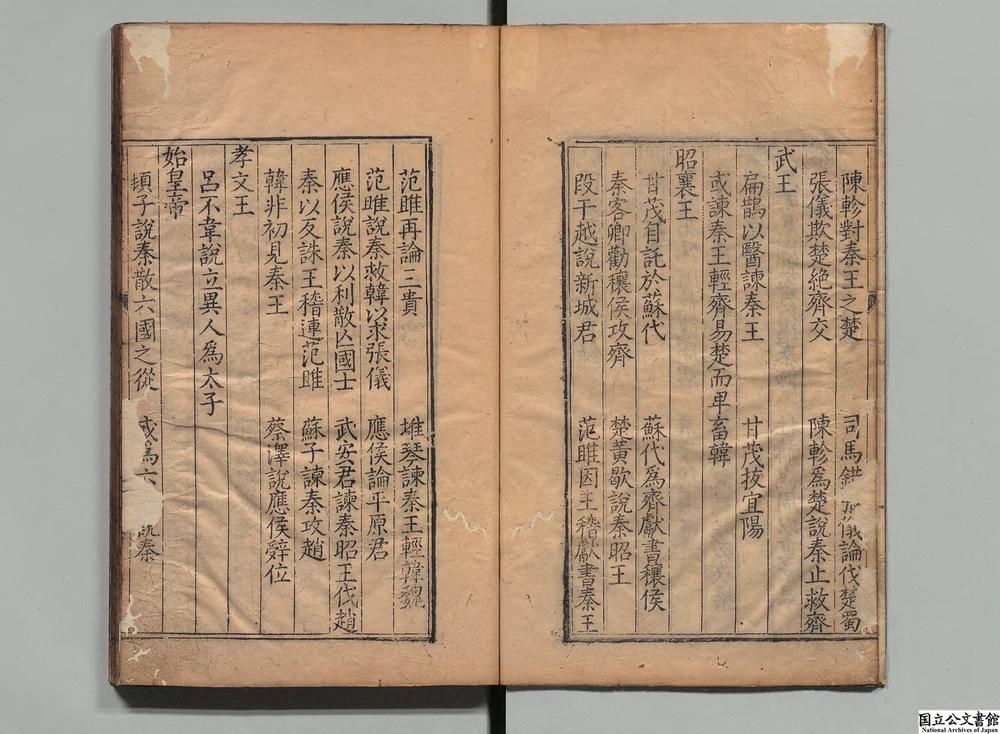 陳軫對秦王之楚 司馬錯 儀論伐楚蜀
張儀欺楚絶齊交 陳軫爲楚說秦止救齊
武王
扁鵲以醫諫秦王 甘茂拔宜陽
或諫秦王輕齊易楚而卑畜韓
昭襄王
甘茂自託於蘇代 蘇代爲齊獻書穰侯
秦客卿勸穰侯攻齊 楚黃歇說秦昭王
段干越說新城君 范雎因王稽獻書秦王
范雎再論三貴 堆琴諫秦王輕韓魏
范雎說秦救韓以求張儀 應侯論平原君
應侯說秦以利散亾國士 武安君諫秦昭王伐趙
秦以反誅王稽連范雎 蘇子諫秦攻趙
韓非初見秦王 蔡澤說應侯辤位
孝文王
呂不韋說立異人爲太子
始皇帝
頓子說秦散六國之從 或爲六 說秦
国立公文書館
National Archives of Japan